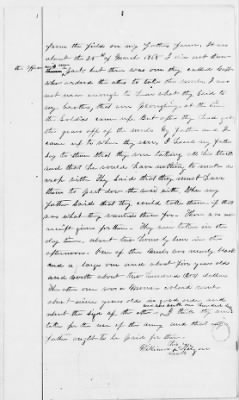 from the field on my father's farm. It was
about the 25th of March 1865 I do not know
the officer part but there was one they called Capt
who ordered the others to take the mules I was
not near enough to hear what they said to
my brother, that was ploughing at the time
the Soldiers came up. But after they had got
the gears off of the mules my father and I
came up to where they were I heard my father
say to them that they were taking all his stock
and that he would have nothing to make a
crop with They said that they must have
them to put down the war with. Then my
father said that they could take them if that
was what they wanted them for. There was no
receipt given for them. They were taken in the
day time. about two hours by sun in the
afternoon. One of the mules was nearly black
and a large one and about five years old
and worth about two hundred dollars
The other one was a mouse colored
about nine years old in good order and
about the size of the other and was worth one hundred
I think they were
taken for the use of the army and that my
father ought to be paid for them.
William his mark